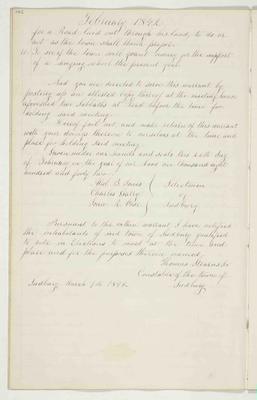 February 1842
for a Road laid out through his land, to do or
act as the town shall think proper.
To see if the town will grant money for the support
of a singing school the present year.
And you are directed to serve this warrant by
posting up an attested copy thereof at the meeting house
aforesaid two Sabbaths at least before the time for
holding said meeting.
Hereof fail not, and make return of this warrant
with your doings thereon to ourselves at the time and
place for holding said meeting.
Given under our hands and seals this
of February in the year of our Lord one thousand eight
hundred and forty two.
Selectmen
Charles
of
Sudbury
Pursuant to the within warrant I have notified
the inhabitants of said town of Sudbury qualified
to vote in Elections to meet at the time and
place and for the purposes therein named.
Thomas Stearns
Constable of the town of
Sudbury March 7th 1842. Sudbury